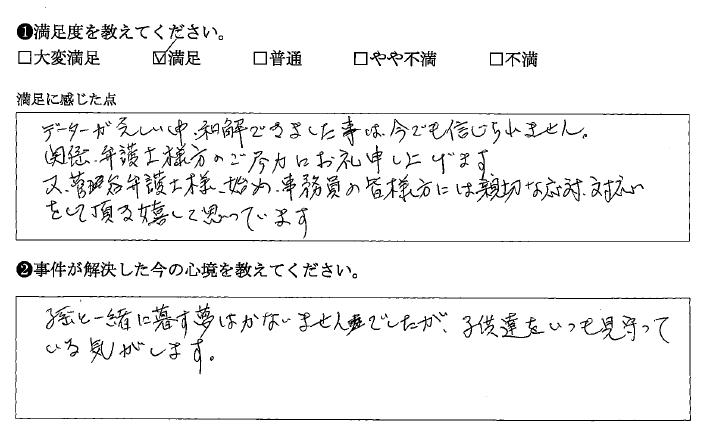 ❶満足度を教えてください。
□大変満足 ☑満足 □普通 □やや不満 □不満
満足に感じた点
データーが乏しい中、和解できました事は、今でも信じられません。
関係、弁護士様方のご尽力にお礼申し上げます
又、弁護士様、始め、事務員の皆様方には親切な応対、対応
をして頂き嬉しく思っています
❷事件が解決した今の心境を教えてください。
孫と一緒に暮す夢はかないませんでしたが、子供達をいつも見守って
いる気がします。